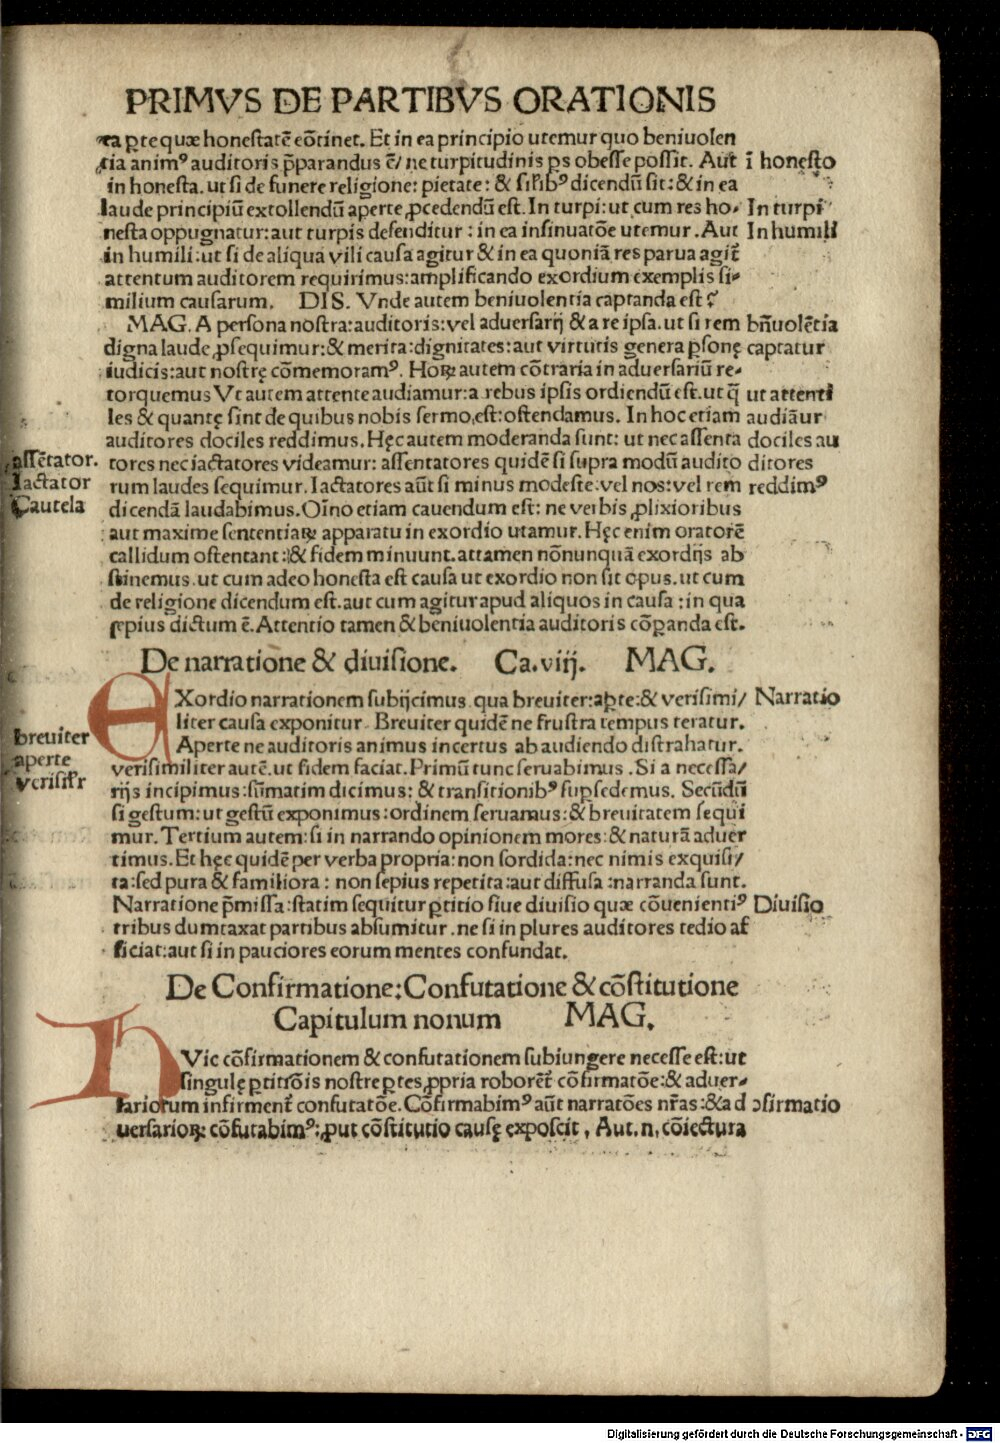 PRIMVS DE PARTIBVS ORATIONIS
ea ꝑte quæ honestatē cōtinet. Et in ea principio utemur quo beniuolen
tia animꝰ auditoris p̄parandus ē/ ne turpitudinis ꝑs obesse possit. Aut ī honesto
in honesta. ut si de funere religione: pietate: & sil̄ibꝰ dicendū sit: & in ea
laude principiū extollendū aperte ꝓcedendū est. In turpi: ut cum res ho- In turpi
nesta oppugnatur: aut turpis defenditur: in ea insinuatōe utemur. Aut In humili
in humili: ut si de aliqua vili causa agitur & in ea quoniā res parua agit̄
attentum auditorem requirimus: amplificando exordium exemplis si-
milium causarum. DIS. Vnde autem beniuolentia captanda est?
MAG. A persona nostra: auditoris: vel aduersarij & a re ipsa. ut si rem bn̄uolētia
digna laude ꝓsequimur: & merita: dignitates: aut virtutis genera ꝑsonę captatur
iudicis: aut nostrę cōmemoramꝰ. Hoꝝ autem cōtraria in aduersariū re-
torquemus Vt autem attente audiamur: a rebus ipsis ordiendū est. ut q̄ ut attenti
les & quantę sint de quibus nobis sermo est: ostendamus. In hoc etiam audiāur
auditores dociles reddimus. Hęc autem moderanda sunt: ut nec assenta dociles au
assētator. tores nec iactatores videamur: assentatores quidē si supra modū audito ditores
Iactator rum laudes sequimur. Iactatores aūt si minus modeste: vel nos: vel rem reddimꝰ
Cautela dicendā laudabimus. Oīno etiam cauendum est: ne verbis ꝓlixioribus
aut maxime sententiaꝝ apparatu in exordio utamur. Hęc enim oratorē
callidum ostentant: & fidem minuunt. attamen nōnunquā exordijs ab
stinemus. ut cum adeo honesta est causa ut exordio non sit opus. ut cum
de religione dicendum est. aut cum agitur apud aliquos in causa: in qua
sępius dictum ē. Attentio tamen & beniuolentia auditoris cōꝑanda est.
De narratione & diuisione. Ca. viij. MAG.
EXordio narrationem subijcimus qua breuiter: aꝑte: & verisimi/ Narratio
liter causa exponitur. Breuiter quidē ne frustra tempus teratur.
breuiter Aperte ne auditoris animus incertus ab audiendo distrahatur.
aperte verisimiliter autē. ut fidem faciat. Primū tunc seruabimus. Si a necessa/
verisil̄r rijs incipimus: sūmatim dicimus: & transitionibꝰ suꝑsedemus. Secūdū
si gestum: ut gestū exponimus: ordinem seruamus: & breuitatem sequi
mur. Tertium autem: si in narrando opinionem mores: & naturā aduer
timus. Et hęc quidē per verba propria: non sordida: nec nimis exquisi/
ta: sed pura & familiora: non sepius repetita: aut diffusa: narranda sunt.
Narratione p̄missa: statim sequitur ꝑtitio siue diuisio quæ cōuenientiꝰ Diuisio
tribus dumtaxat partibus absumitur. ne si in plures auditores tedio af
ficiat: aut si in pauciores eorum mentes confundat.
De Confirmatione: Confutatione & cōstitutione
Capitulum nonum MAG.
HVic cōfirmationem & confutationem subiungere necesse est: ut
singulę ꝑtitiōis nostre ꝑtes ꝓpria roborēt̄ cōfirmatōe: & aduer-
sariorum infirment̄ confutatōe. Cōfirmabimꝰ aūt narratōes nr̄as: & ad ↄfirmatio
uersarioꝝ cōfutabimꝰ: ꝓut cōstitutio causę exposcit. Aut. n. cōiectura
Digitalisierung gefördert durch die Deutsche Forschungsgemeinschaft - DFG